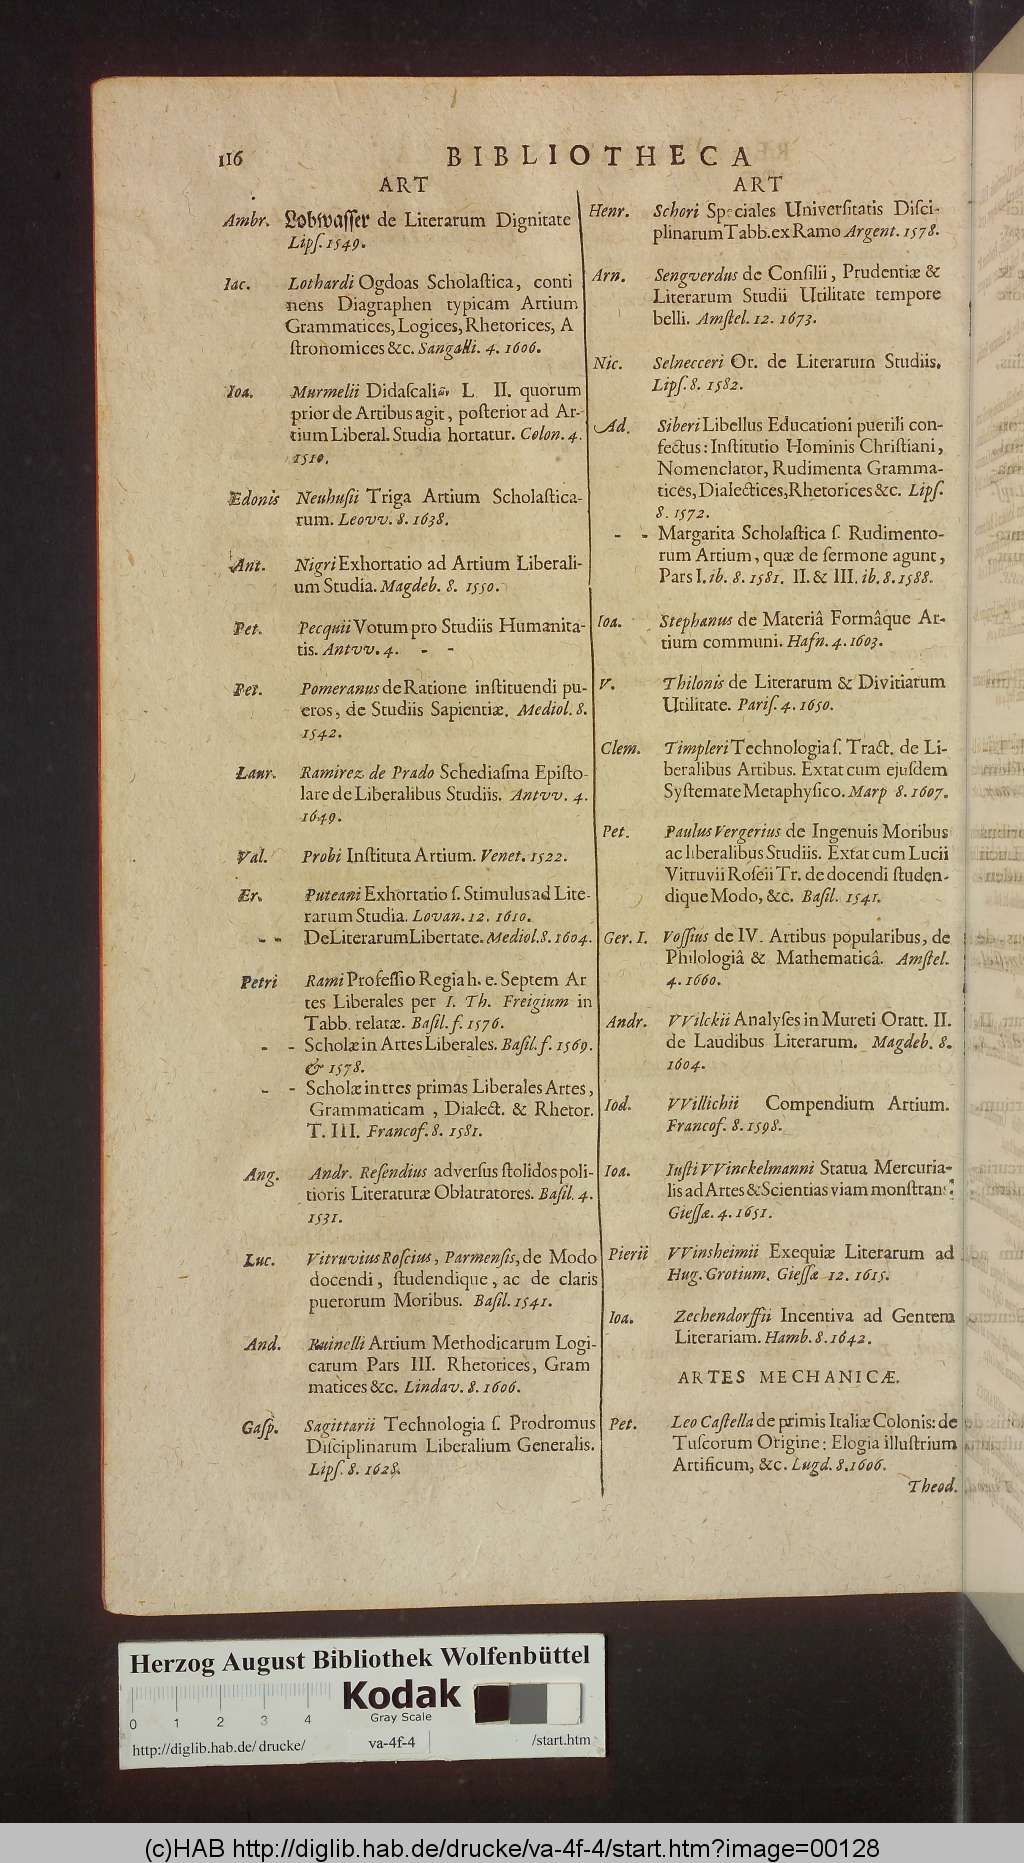 116
BIBLIOTHECA
ART
Ambr. Lobwasser de Literarum Dignitate
Lipſ. 1549.
Iac. Lothardi Ogdoas Scholaſtica, conti
nens Diagraphen typicam Artium
Grammatices, Logices, Rhetorices, A
ſtronomices &c. Sangalli. 4. 1606.
Ioa. Murmelii Didaſcaliæ L II. quorum
prior de Artibus agit, poſterior ad Ar-
tium Liberal. Studia hortatur. Colon. 4.
1510.
Edonis Neuhuſii Triga Artium Scholaſtica-
rum. Leovv. 8. 1638.
Ant. Nigri Exhortatio ad Artium Liberali-
um Studia. Magdeb. 8. 1550.
Pet. Pecquii Votum pro Studiis Humanita-
tis. Antvv. 4. - -
Pet. Pomeranus de Ratione inſtituendi pu-
eros, de Studiis Sapientiæ. Mediol. 8.
1542.
Laur. Ramirez de Prado Schediaſma Epiſto-
lare de Liberalibus Studiis. Antvv. 4.
1649.
Val. Probi Inſtituta Artium. Venet. 1522.
Er. Puteani Exhortatio ſ. Stimulus ad Lite-
rarum Studia. Lovan. 12. 1610.
- - De Literarum Libertate. Mediol. 8. 1604.
Petri Rami Profeſſio Regia h. e. Septem Ar
tes Liberales per I. Th. Freigium in
Tabb. relatæ. Baſil. f. 1576.
- - Scholæ in Artes Liberales. Baſil. f. 1569.
& 1578.
- - Scholæ in tres primas Liberales Artes,
Grammaticam, Dialect. & Rhetor.
T. III. Francof. 8. 1581.
Ang. Andr. Reſendius adverſus ſtolidos poli-
tioris Literaturæ Oblatratores. Baſil. 4.
1531.
Luc. Vitruvius Roſcius, Parmenſis, de Modo
docendi, ſtudendique, ac de claris
puerorum Moribus. Baſil. 1541.
And. Ruinelli Artium Methodicarum Logi-
carum Pars III. Rhetorices, Gram
matices &c. Lindav. 8. 1606.
Gaſp. Sagittarii Technologia ſ. Prodromus
Diſciplinarum Liberalium Generalis.
Lipſ. 8. 1628.
ART
Henr. Schori Speciales Univerſitatis Diſci-
plinarum Tabb. ex Ramo Argent. 1578.
Arn. Sengverdus de Conſilii, Prudentiæ &
Literarum Studii Utilitate tempore
belli. Amſtel. 12. 1673.
Nic. Selnecceri Or. de Literarum Studiis.
Lipſ. 8. 1582.
Ad. Siberi Libellus Educationi puerili con-
fectus: Inſtitutio Hominis Chriſtiani,
Nomenclator, Rudimenta Gramma-
tices, Dialectices, Rhetorices &c. Lipſ.
8. 1572.
- - Margarita Scholaſtica ſ. Rudimento-
rum Artium, quæ de ſermone agunt,
Pars I. ib. 8. 1581. II. & III. ib. 8. 1588.
Ioa. Stephanus de Materiâ Formâque Ar-
tium communi. Hafn. 4. 1603.
V. Thilonis de Literarum & Divitiarum
Utilitate. Pariſ. 4. 1650.
Clem. Timpleri Technologia ſ. Tract. de Li-
beralibus Artibus. Extat cum ejuſdem
Syſtemate Metaphyſico. Marp 8. 1607.
Pet. Paulus Vergerius de Ingenuis Moribus
ac liberalibus Studiis. Extat cum Lucii
Vitruvii Roſeii Tr. de docendi ſtuden-
dique Modo, &c. Baſil. 1541.
Ger. I. Voſſius de IV. Artibus popularibus, de
Philologiâ & Mathematicâ. Amſtel.
4. 1660.
Andr. VVilckii Analyſes in Mureti Oratt. II.
de Laudibus Literarum. Magdeb. 8.
1604.
Iod. VVillichii Compendium Artium.
Francof. 8. 1598.
Ioa. Iuſti VVinckelmanni Statua Mercuria-
lis ad Artes & Scientias viam monſtrans.
Gieſſæ. 4. 1651.
Pierii VVinsheimii Exequiæ Literarum ad
Hug. Grotium. Gieſſæ 12. 1615.
Ioa. Zechendorffii Incentiva ad Gentem
Literariam. Hamb. 8. 1642.
ARTES MECHANICÆ.
Pet. Leo Caſtella de primis Italiæ Colonis: de
Tuſcorum Origine: Elogia illuſtrium
Artificum, &c. Lugd. 8. 1606.
Theod.
Herzog August Bibliothek Wolfenbüttel
Kodak
Gray Scale
0 1 2 3 4
http://diglib.hab.de/drucke/ va-4f-4 /start.htm
(c)HAB http://diglib.hab.de/drucke/va-4f-4/start.htm?image=00128